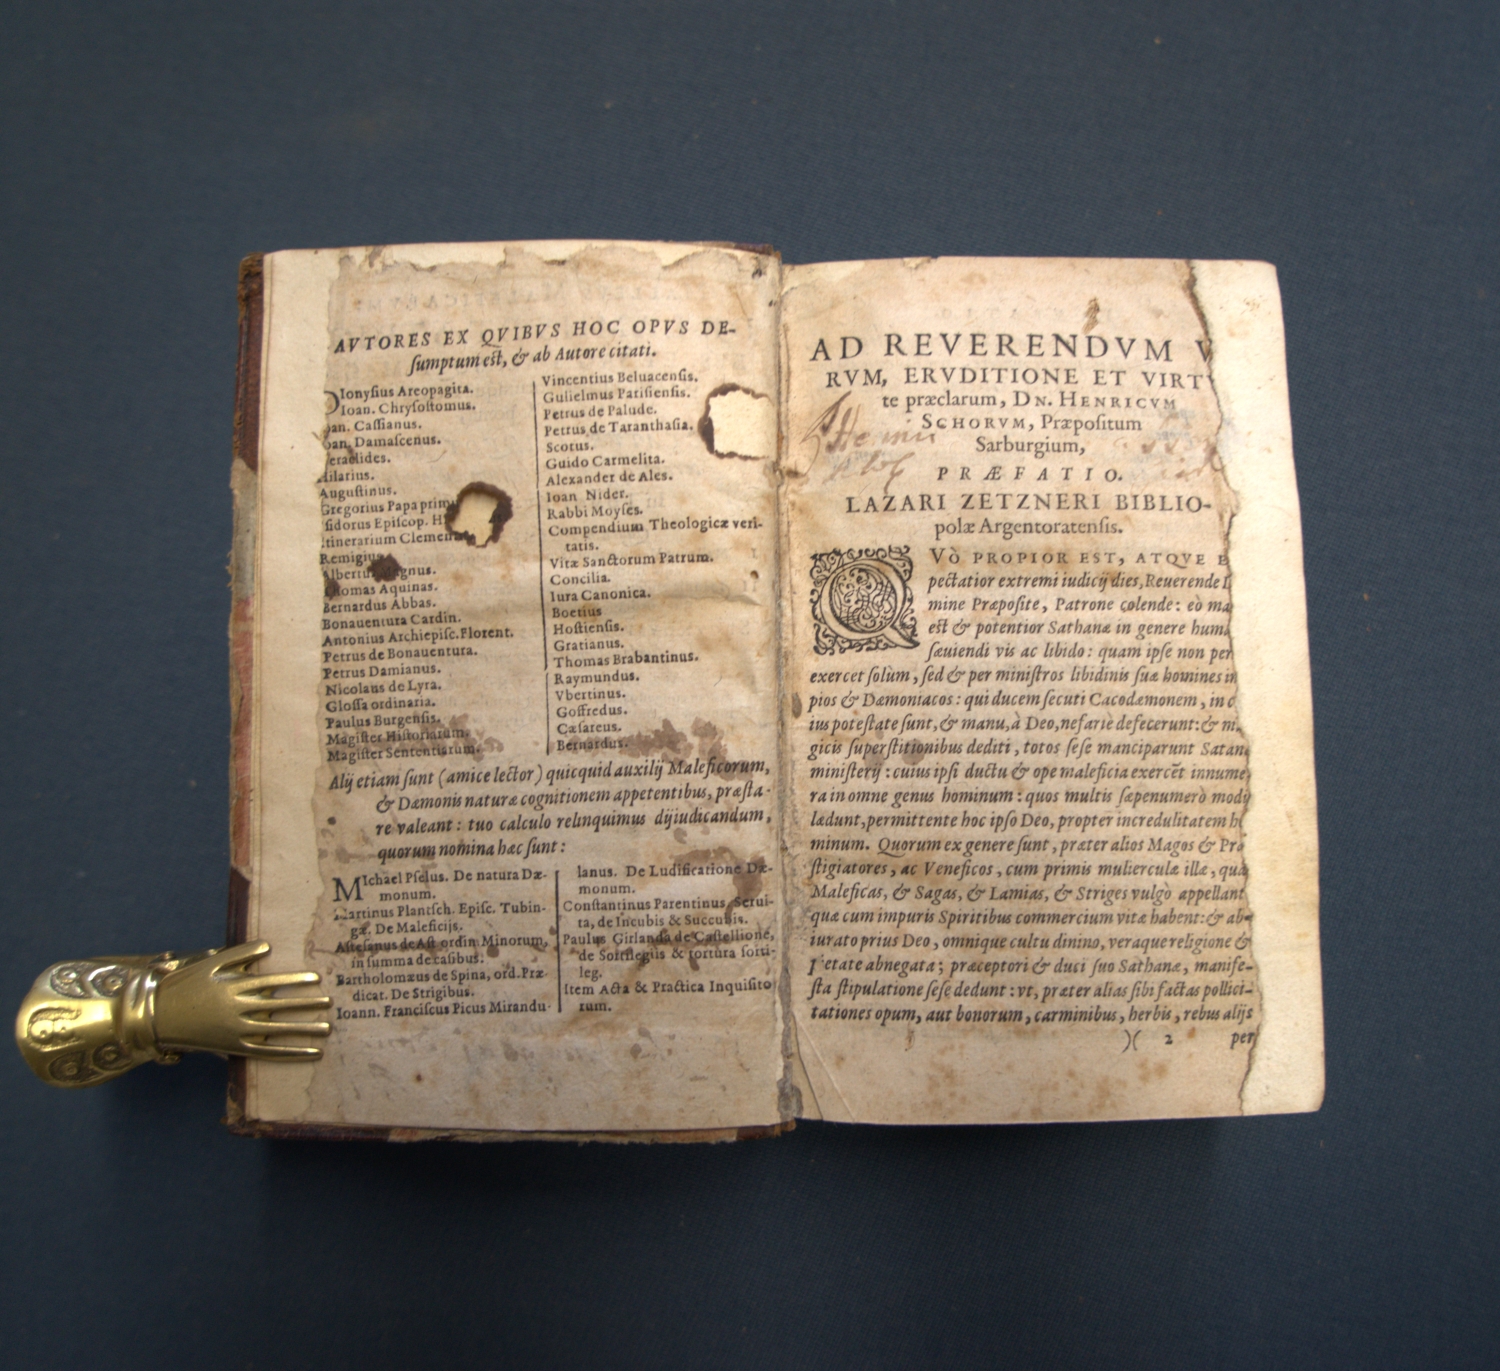 AVTORES EX QVIBVS HOC OPVS DE-
ſumptum eſt, & ab Autore citati.
DIonyſius Areopagita.
Ioan. Chryſoſtomus.
oan. Caſſianus.
oan. Damaſcenus.
eraclides.
Hilarius.
Auguſtinus.
Gregorius Papa prim
ſidorus Epiſcop. H
Itinerarium Clemen
Remigius
Albertu gnus.
Thomas Aquinas.
Bernardus Abbas.
Bonauentura Cardin.
Antonius Archiepiſc. Florent.
Petrus de Bonauentura.
Petrus Damianus.
Nicolaus de Lyra.
Gloſſa ordinaria.
Paulus Burgenſis.
Magiſter Hiſtoriarum.
Magiſter Sententiarum.
Vincentius Beluacenſis.
Gulielmus Pariſienſis.
Petrus de Palude.
Petrus de Taranthaſia.
Scotus.
Guido Carmelita.
Alexander de Ales.
Ioan Nider.
Rabbi Moyſes.
Compendium Theologicæ veri-
tatis.
Vitæ Sanctorum Patrum.
Concilia.
Iura Canonica.
Boetius
Hoſtienſis.
Gratianus.
Thomas Brabantinus.
Raymundus.
Vbertinus.
Goffredus.
Cæſareus.
Bernardus.
Alij etiam ſunt (amice lector) quicquid auxilij Maleficorum,
& Dæmonis naturæ cognitionem appetentibus, præſta-
re valeant: tuo calculo relinquimus dijudicandum,
quorum nomina hæc ſunt:
MIchael Pſelus. De natura Dæ-
monum.
Martinus Plantſch. Epiſc. Tubin-
gæ. De Maleficijs.
Aſteſanus de Aſt ordin Minorum,
in ſumma de caſibus.
Bartholomæus de Spina, ord. Præ
dicat. De Strigibus.
Ioann. Franciſcus Picus Mirandu-
lanus. De Ludificatione Dæ-
monum.
Conſtantinus Parentinus, Serui-
ta, de Incubis & Succubis.
Paulus Girlanda de Caſtellione,
de Sortilegiis & tortura ſorti-
leg.
Item Acta & Practica Inquiſito
rum.
AD REVERENDVM V
RVM, ERVDITIONE ET VIRT
te præclarum, DN. HENRICVM
SCHORVM, Præpoſitum
Sarburgium,
PRÆFATIO.
LAZARI ZETZNERI BIBLIO-
polæ Argentoratenſis.
QVò PROPIOR EST, ATQVE E
pectatior extremi iudicij dies, Reuerende D
mine Præpoſite, Patrone colende: eò ma
eſt & potentior Sathanæ in genere huma
ſæuiendi vis ac libido: quam ipſe non per
exercet ſolùm, ſed & per miniſtros libidinis ſuæ homines im
pios & Dæmoniacos: qui ducem ſecuti Cacodæmonem, in c
ius poteſtate ſunt, & manu, à Deo, nefariè defecerunt: & ma
gicis ſuperſtitionibus dediti, totos ſeſe manciparunt Satan
miniſterij: cuius ipſi ductu & ope maleficia exercēt innume
ra in omne genus hominum: quos multis ſæpenumerò modi
lædunt, permittente hoc ipſo Deo, propter incredulitatem ho
minum. Quorum ex genere ſunt, præter alios Magos & Præ
ſtigiatores, ac Veneficos, cum primis mulierculæ illæ, qua
Maleficas, & Sagas, & Lamias, & Striges vulgò appellant
quæ cum impuris Spiritibus commercium vitæ habent: & ab-
iurato prius Deo, omnique cultu diuino, veraque religione &
Pietate abnegata; præceptori & duci ſuo Sathanæ, manife-
ſta ſtipulatione ſeſe dedunt: vt, præter alias ſibi factas pollici-
tationes opum, aut bonorum, carminibus, herbis, rebus alijs
)( 2 per